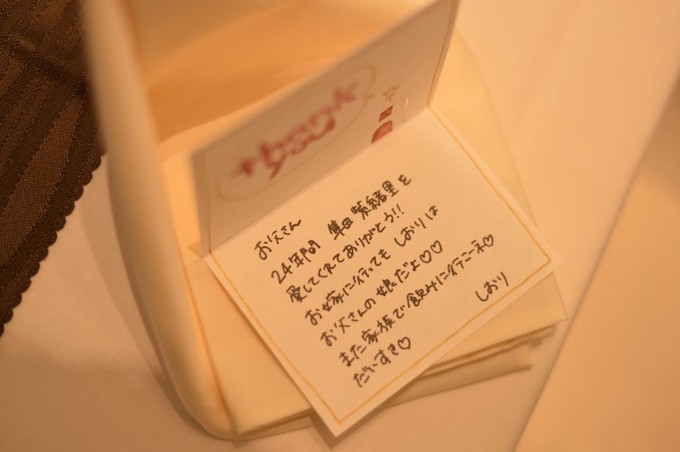 thank
you
お父さん
24年間 紫緒里を
愛してくれてありがとう!!
お嫁に行っても しおりは
お父さんの娘だよ♡♡
また家族で飲みに行こーえ♡
だいすき♡
しおり